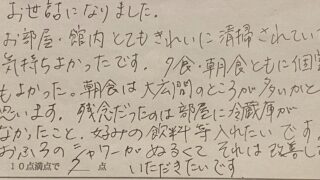 お世話になりました。
お部屋・館内とてもきれいに清掃されてい
気持ちよかったです。夕食・朝食ともに個室
もよかった。朝食は大広間のところが多いかと
思います。残念だったのは部屋に冷蔵庫が
なかったこと、好みの飲料等入れたいです。
おふろのシャワーがぬるくてそれは改善して
10点満点で 点 いただきたいです